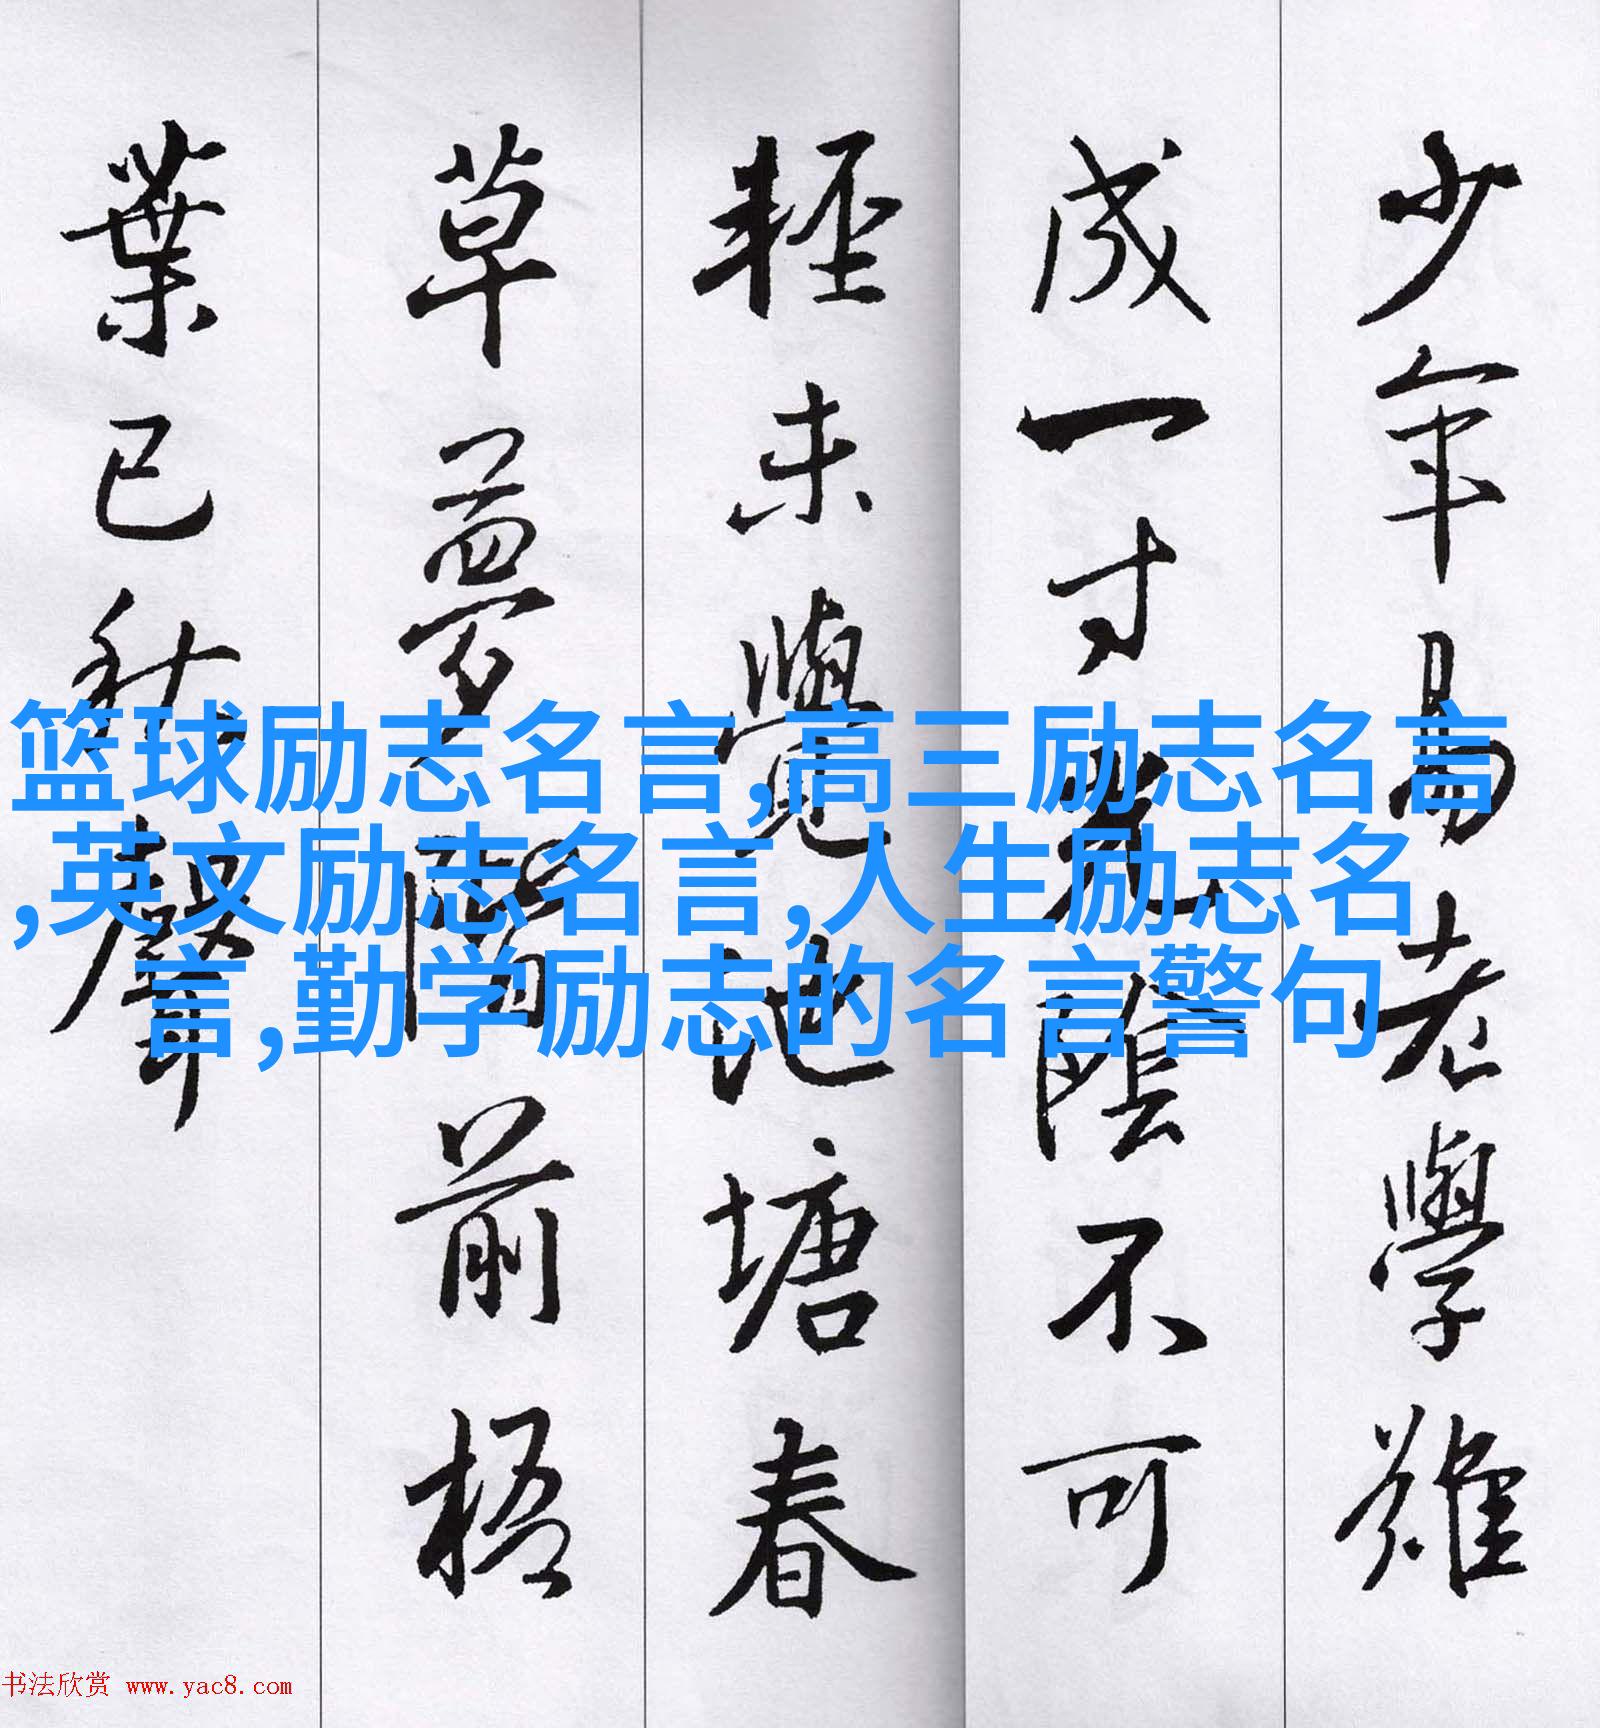 少年易老學難
成一寸光陰不可
輕未覺池塘春
草夢階前梧
葉已秋聲
篮球励志名言,高三励志名言
,英文励志名言,人生励志名
言,勤学励志的名言警句
书法欣赏 www.yac8.com